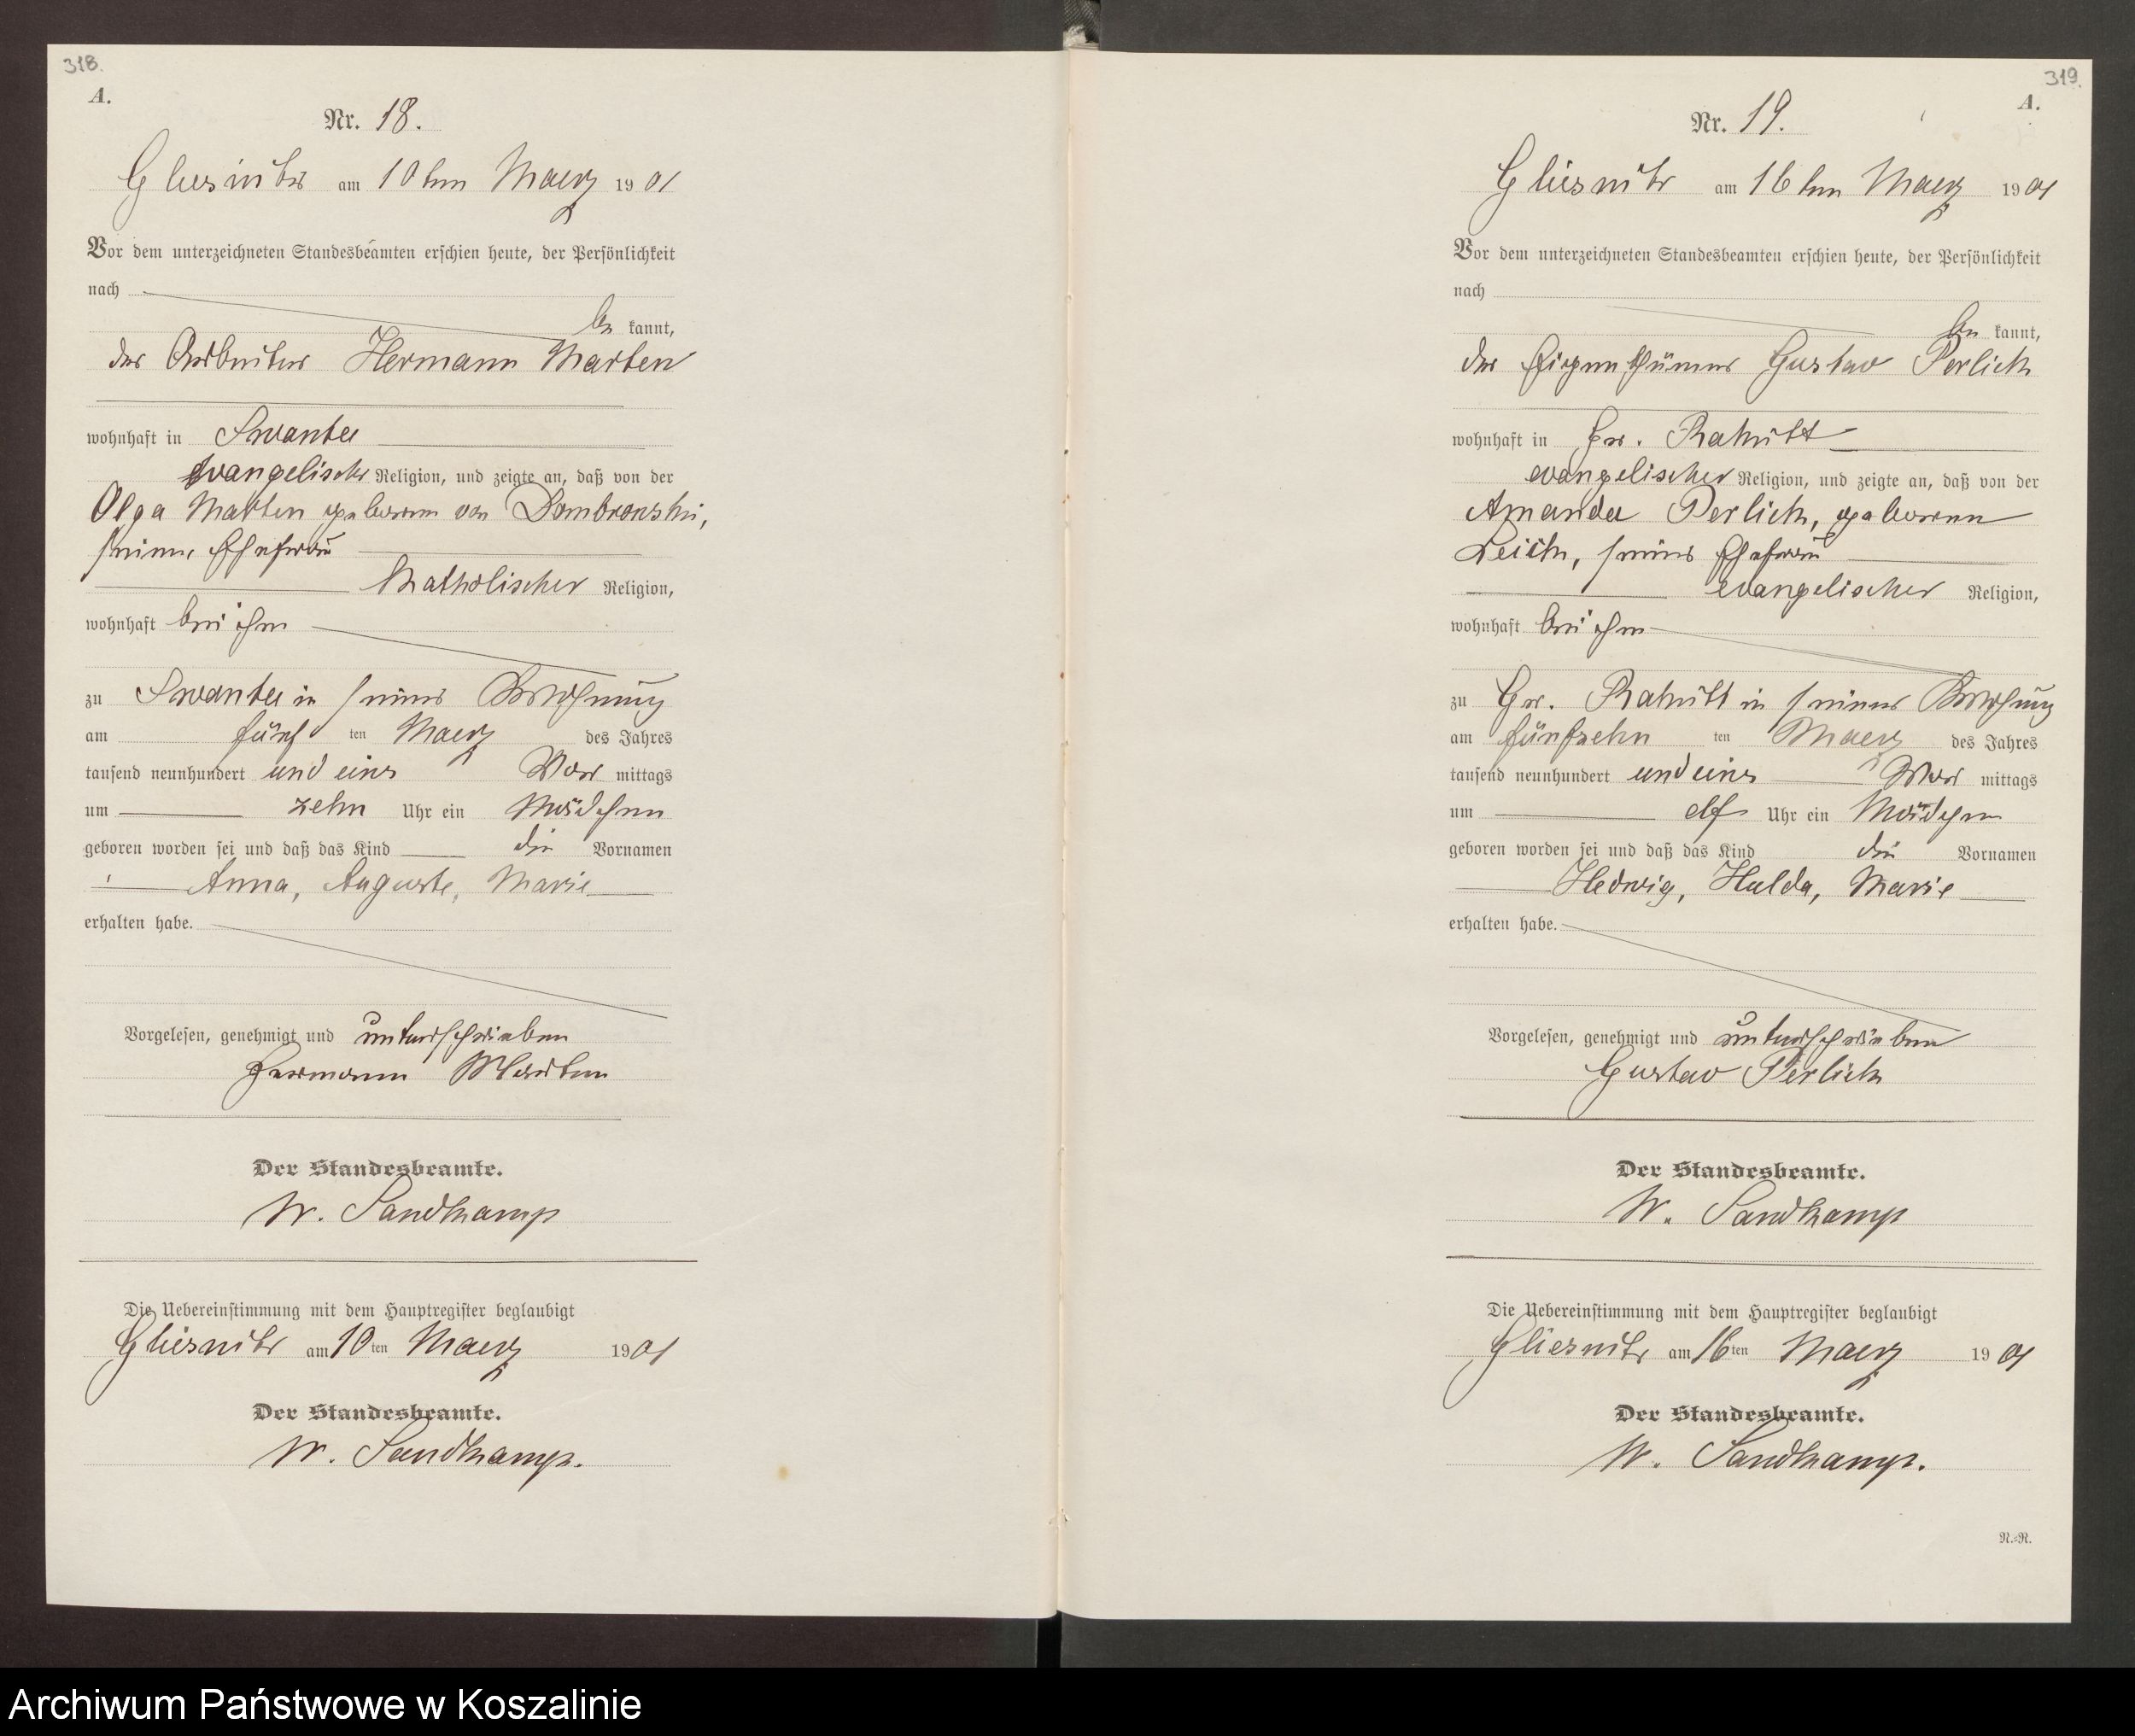 318.
A.
Nr. 18.
Gliesnitz am 10ten Maerz 1901
Vor dem unterzeichneten Standesbeamten erschien heute, der Persönlichkeit
nach
be kannt,
der Arbeiter Hermann Marten
wohnhaft in Swantee
evangelischer Religion, und zeigte an, daß von der
Olga Marten geborenen von Dombronski,
seiner Ehefrau
katholischer Religion,
wohnhaft bei ihm
zu Swantee in seiner Wohnung
am fünf ten Maerz des Jahres
tausend neunhundert und eins Vor mittags
um zehn Uhr ein Mädchen
geboren worden sei und daß das Kind die Vornamen
Anna, Auguste, Marie
erhalten habe.
Vorgelesen, genehmigt und unterschrieben
Hermann Marten
Der Standesbeamte.
W. Sandkamp
Die Uebereinstimmung mit dem Hauptregister beglaubigt
Gliesnitz am 10ten Maerz 1901
Der Standesbeamte.
W. Sandkamp.
319.
A.
Nr. 19.
Gliesnitz am 16ten Maerz 1901
Vor dem unterzeichneten Standesbeamten erschien heute, der Persönlichkeit
nach
be kannt,
der Eigenthümer Gustav Perlick
wohnhaft in Gr. Rakitt
evangelischer Religion, und zeigte an, daß von der
Amanda Perlick, geborenen
seiner Ehefrau
evangelischer Religion,
wohnhaft bei ihm
zu Gr. Rakitt in seiner Wohnung
am fünfzehn ten Maerz des Jahres
tausend neunhundert und eins Vor mittags
um elf Uhr ein Mädchen
geboren worden sei und daß das Kind die Vornamen
Hedwig, Hulda, Marie
erhalten habe.
Vorgelesen, genehmigt und unterschrieben
Gustav Perlick
Der Standesbeamte.
W. Sandkamp
Die Uebereinstimmung mit dem Hauptregister beglaubigt
Gliesnitz am 16ten Maerz 1901
Der Standesbeamte.
W. Sandkamp.
R.-R.
Archiwum Państwowe w Koszalinie